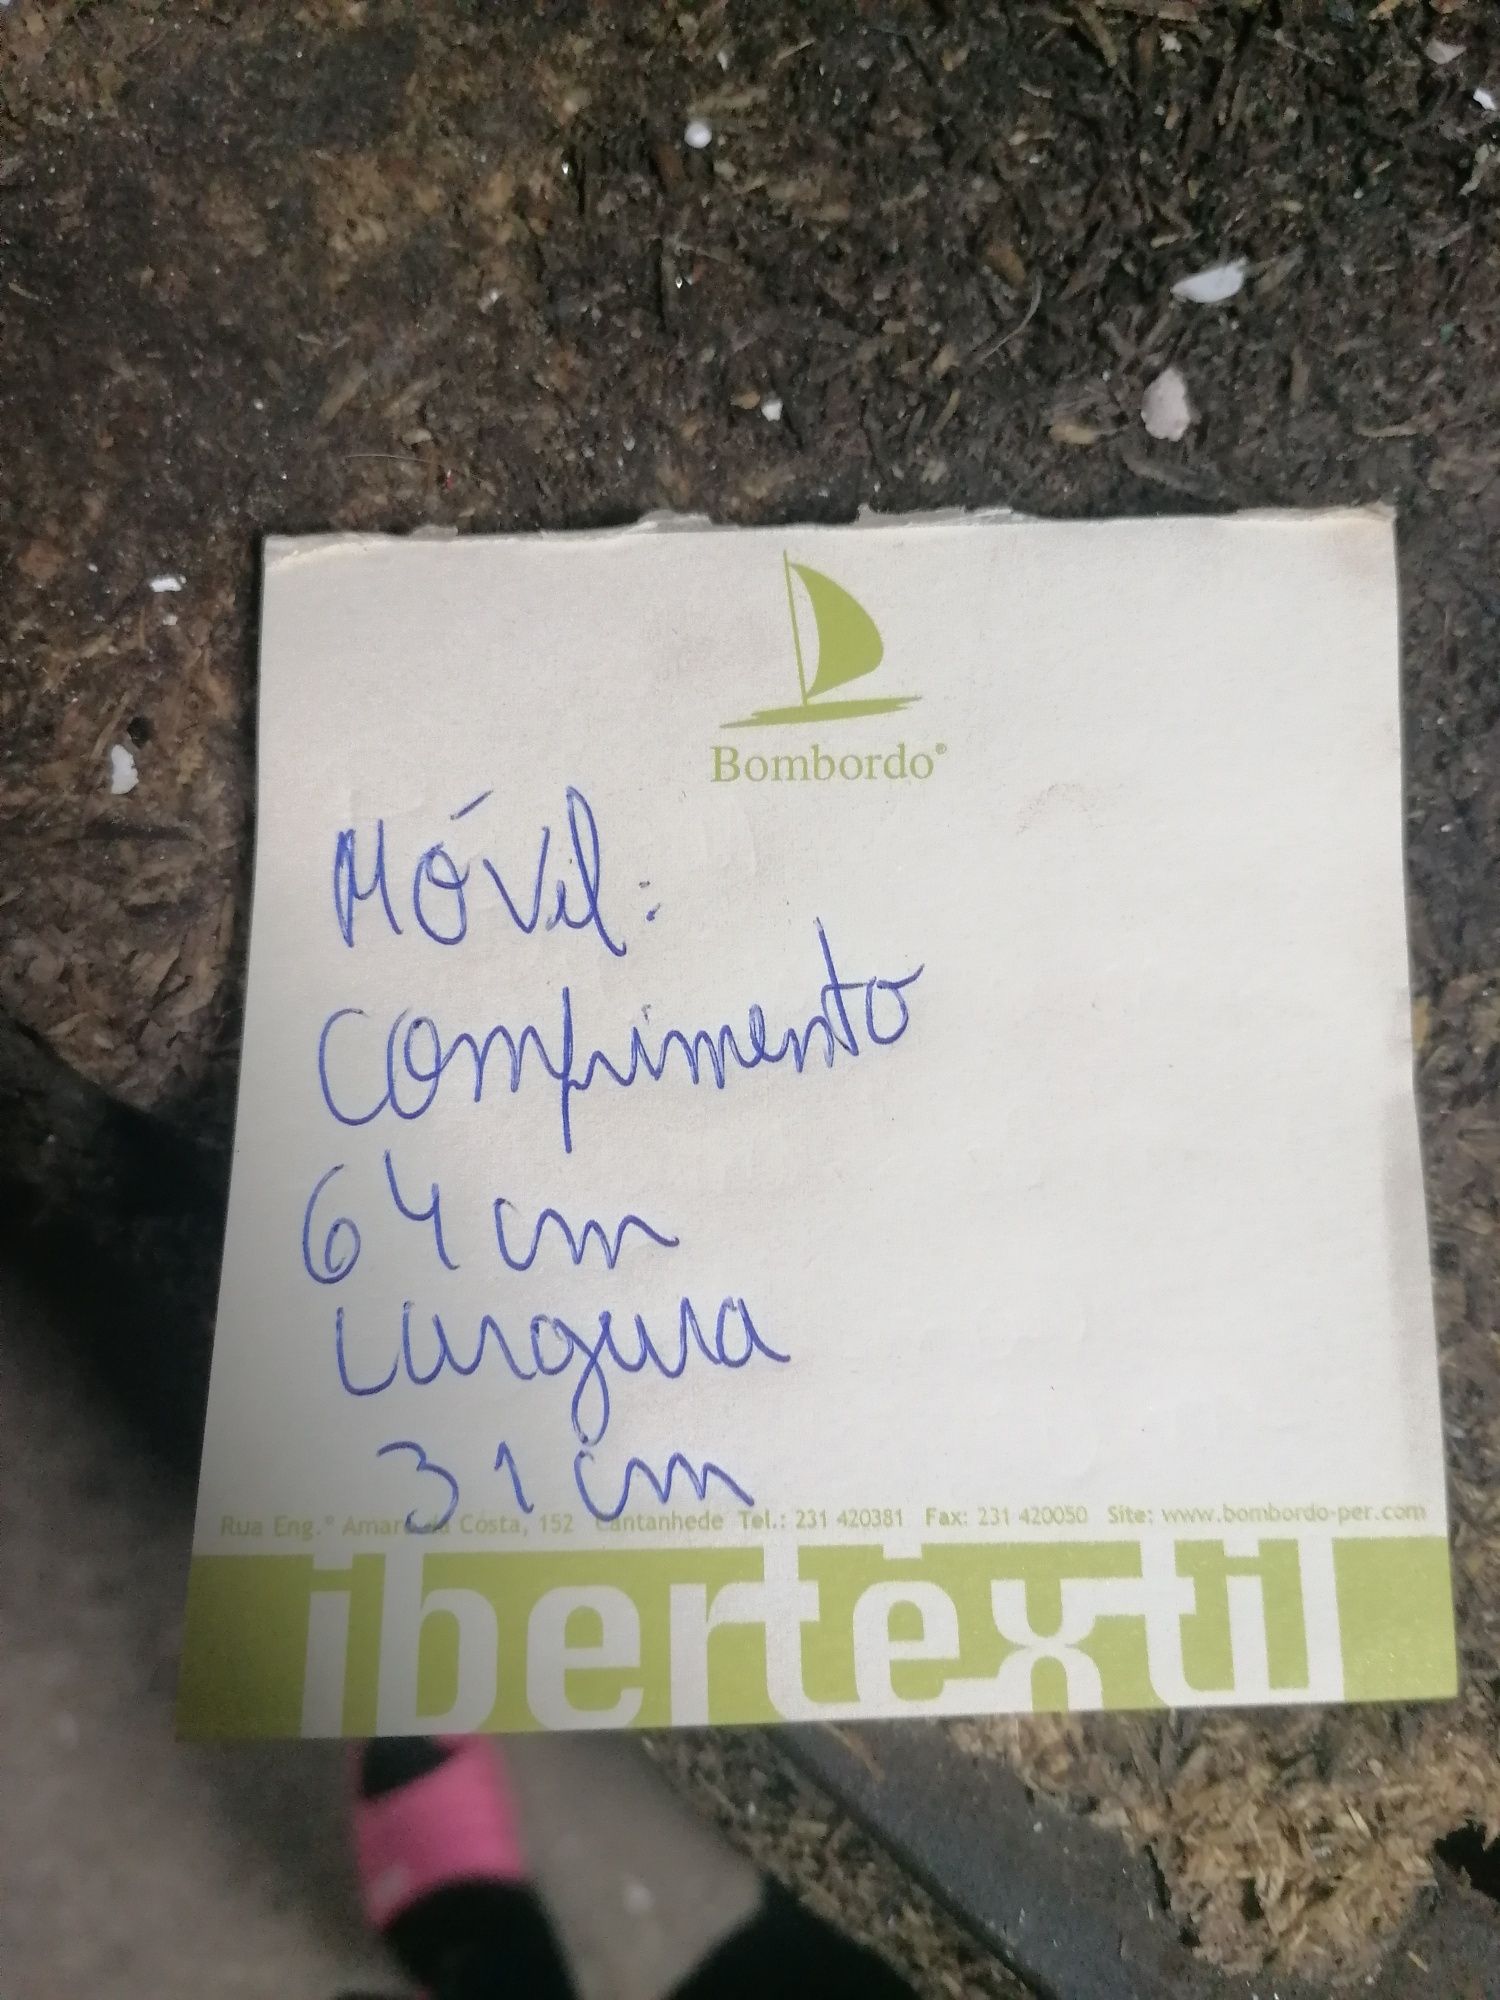 Bombordo®
Móvel:
Comprimento
64 cm
Largura
31 cm
Rua Eng.º Amaro da Costa, 152 Cantanhede Tel.: 231 420381 Fax: 231 420050 Site: www.bombordo-per.com
ibertextil